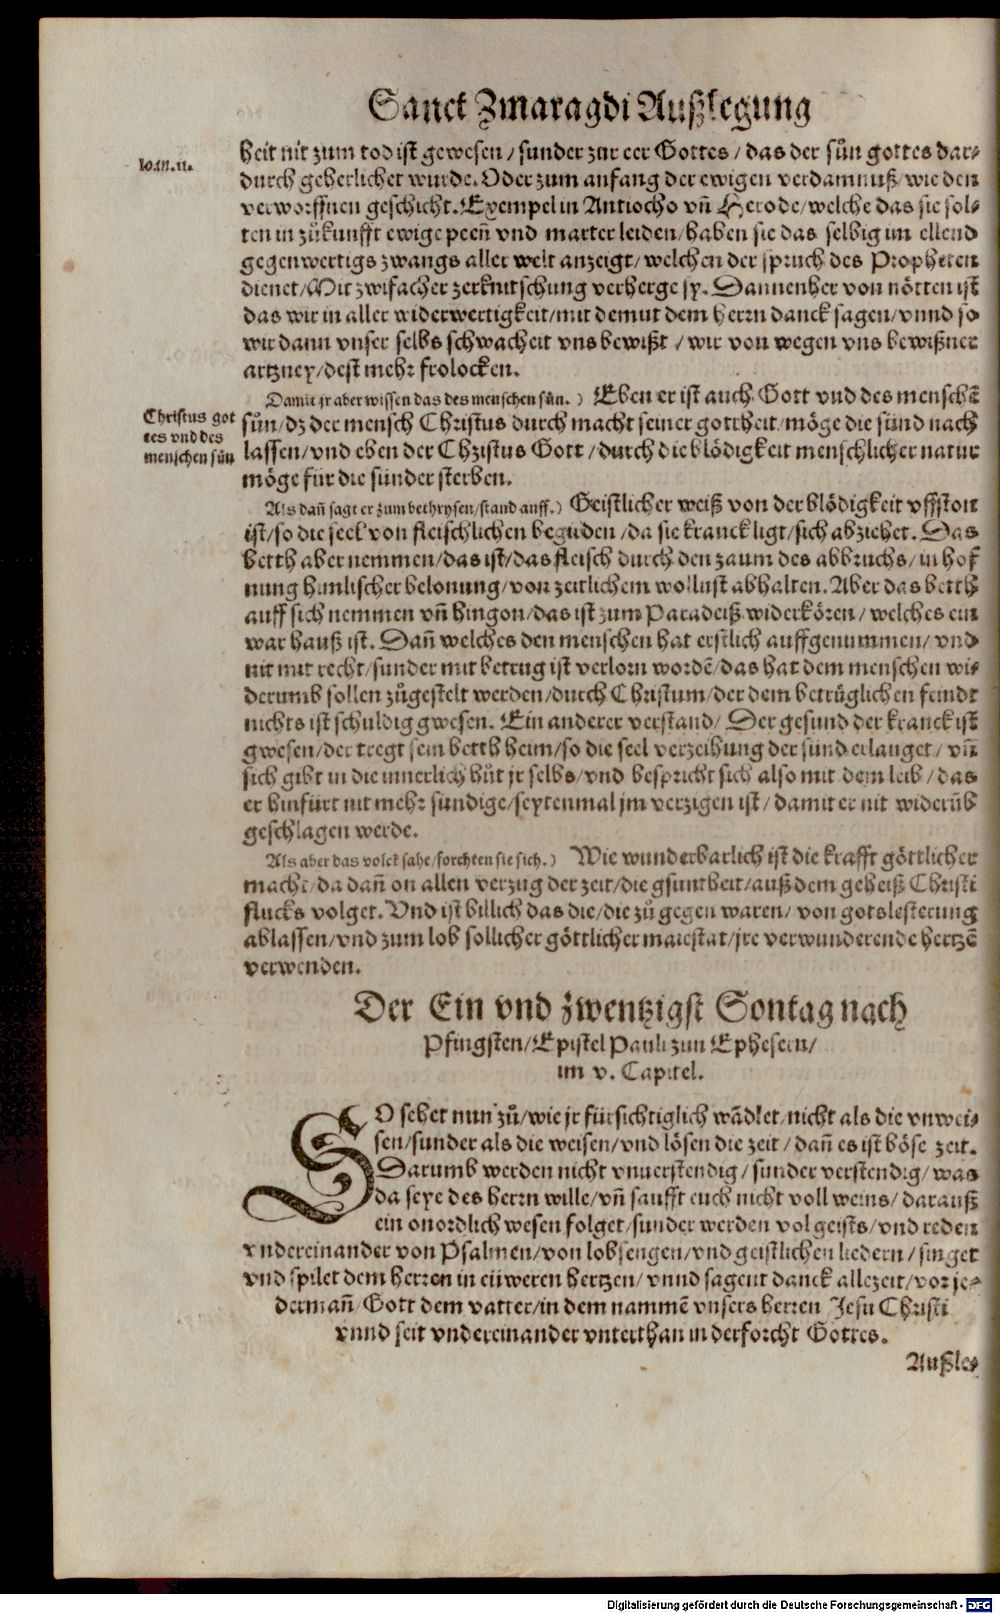 Sanct Zmaragdi Außlegung
Ioan.11.
heit nit zum tod ist gewesen / sunder zur eer Gottes / das der sůn gottes dar⸗
durch geherlichet wurde. Oder zum anfang der ewigen verdamnuß / wie den
verworffnen geschicht. Exempel in Antiocho vn̄ Herode / welche das sie sol⸗
ten in zůkunfft ewige peen̄ vnd marter leiden / haben sie das selbig im ellend
gegenwertigs zwangs aller welt anzeigt / welchen der spruch des Propheten
dienet / Mit zwifacher zerknitschung verherge sy. Dannenher von nötten ist
das wir in aller widerwertigkeit / mit demut dem herrn danck sagen / vnnd so
wir dann vnser selbs schwacheit vns bewißt / wir von wegen vns bewißner
artzney / dest mehr frolocken.
Damit jr aber wissen das des menschen sůn. ) Eben er ist auch Gott vnd des menschē
Christus got
tes vnd des
menschen sůn
sůn / dz der mensch Christus durch macht seiner gottheit / möge die sünd nach
lassen / vnd eben der Christus Gott / durch die blödigkeit menschlicher natur
möge für die sünder sterben.
Als dan̄ sagt er zum bethrysen / stand auff. ) Geistlicher weiß von der blödigkeit vffston
ist / so die seel von fleischlichen begirden / da sie kranck ligt / sich abziehet. Das
betth aber nemmen / das ist / das fleisch durch den zaum des abbruchs / in hof
nung himlischer belonung / von zeitlichem wollust abhalten. Aber das betth
auff sich nemmen vn̄ hingon / das ist zum Paradeiß widerkören / welches ein
war hauß ist. Dan̄ welches den menschen hat erstlich auffgenummen / vnd
nit mit recht / sunder mit betrug ist verlorn wordē / das hat dem menschen wi⸗
derumb sollen zůgestelt werden / durch Christum / der dem betrüglichen feindt
nichts ist schuldig gwesen. Ein anderer verstand / Der gesund der kranck ist
gwesen / der tregt sein betth heim / so die seel verzeihung der sünd erlanget / vn̄
sich gibt in die innerlich hůt jr selbs / vnd bespricht sich also mit dem leib / das
er hinfürt nit mehr sündige / seytenmal jm verzigen ist / damit er nit widerūb
geschlagen werde.
Als aber das volck sahe / forchten sie sich. ) Wie wunderbarlich ist die krafft göttlicher
macht / da dan̄ on allen verzug der zeit / die gsuntheit / auß dem geheiß Christi
flucks volget. Vnd ist billich das die / die zů gegen waren / von gotslesterung
ablassen / vnd zum lob sollicher göttlicher maiestat / jre verwunderende hertzē
verwenden.
Der Ein vnd zwentzigst Sontag nach
Pfingsten / Epistel Pauli zun Ephesern /
im v. Capitel.
SO sehet nun zů / wie jr fürsichtiglich wādlet / nicht als die vnwei⸗
sen / sunder als die weisen / vnd lösen die zeit / dan̄ es ist böse zeit.
Darumb werden nicht vnuerstendig / sunder verstendig / was
da seye des herrn wille / vn̄ saufft euch nicht voll weins / darauß
ein onordlich wesen folget / sunder werden vol geists / vnd reden
vndereinander von Psalmen / von lobsengen / vnd geistlichen liedern / singet
vnd spilet dem herren in eüweren hertzen / vnnd sagent danck allezeit / vor je⸗
derman̄ Gott dem vatter / in dem nammē vnsers herren Jesu Christi
vnnd seit vndereinander vnterthan in der forcht Gottes.
Außle⸗
Digitalisierung gefördert durch die Deutsche Forschungsgemeinschaft - DFG